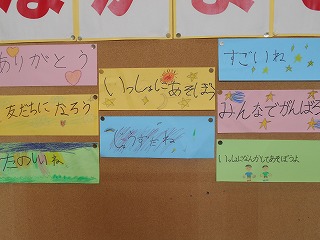 ありがとう
友だちになろう
たのしいね
いっしょにあそぼう
じょうずだね
すごいね
みんなでがんばろ
いっしょになんかしてあそぼうよ